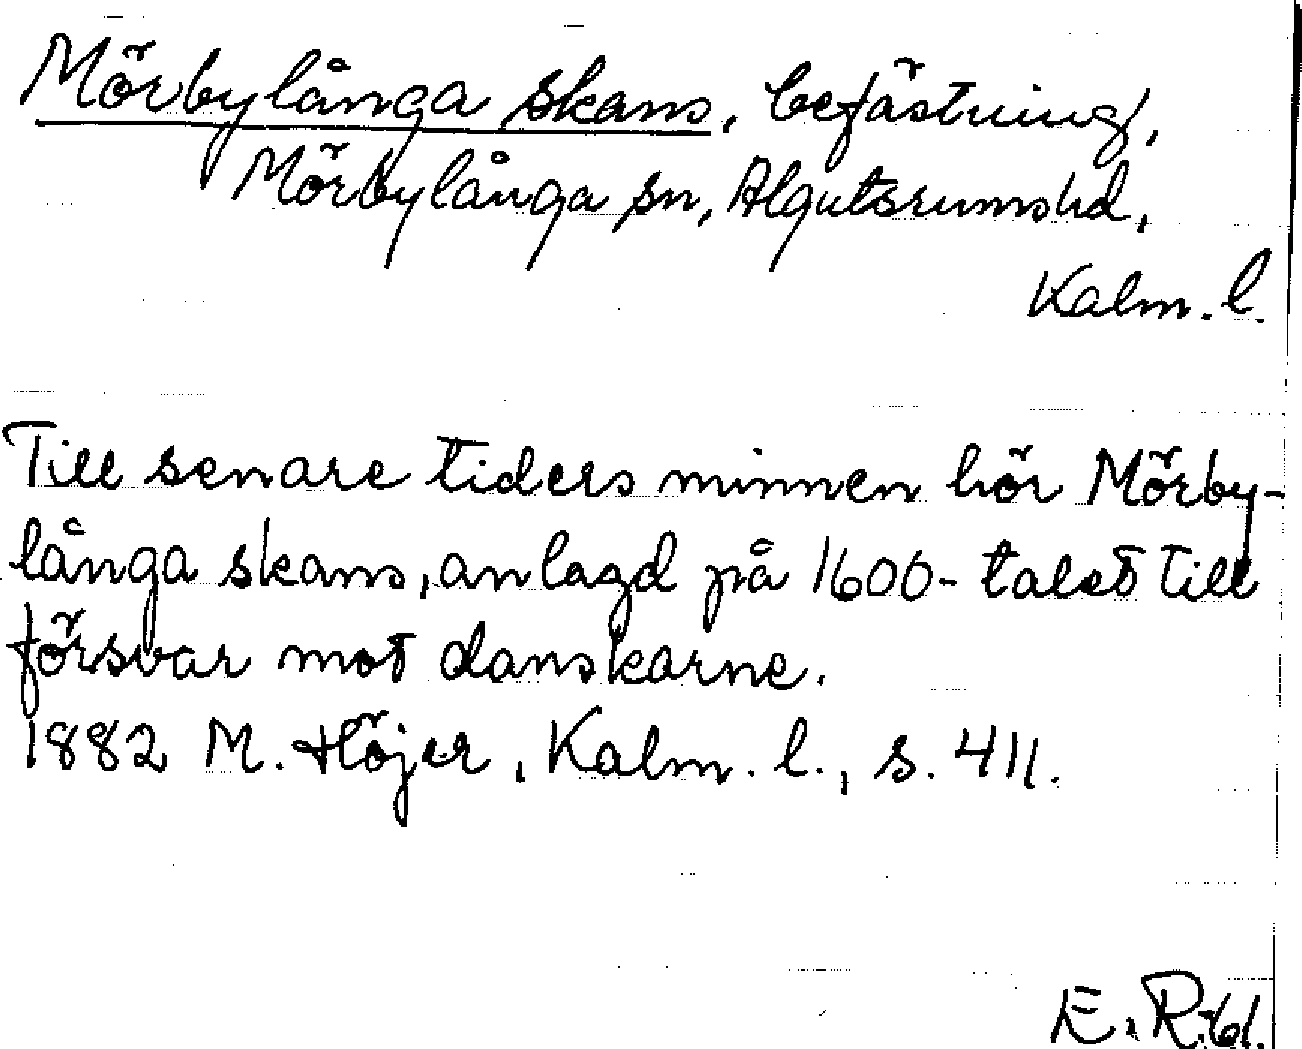 Mörbylånga skans, befästning,
Mörbylånga sn, Algutsrums hd,
Kalm. l.
Till senare tiders minnen hör Mörby-
långa skans, anlagd på 1600-talet till
försvar mot danskarne.
1882 M. Höjer, Kalm. l., s. 411.
E. R. 61.